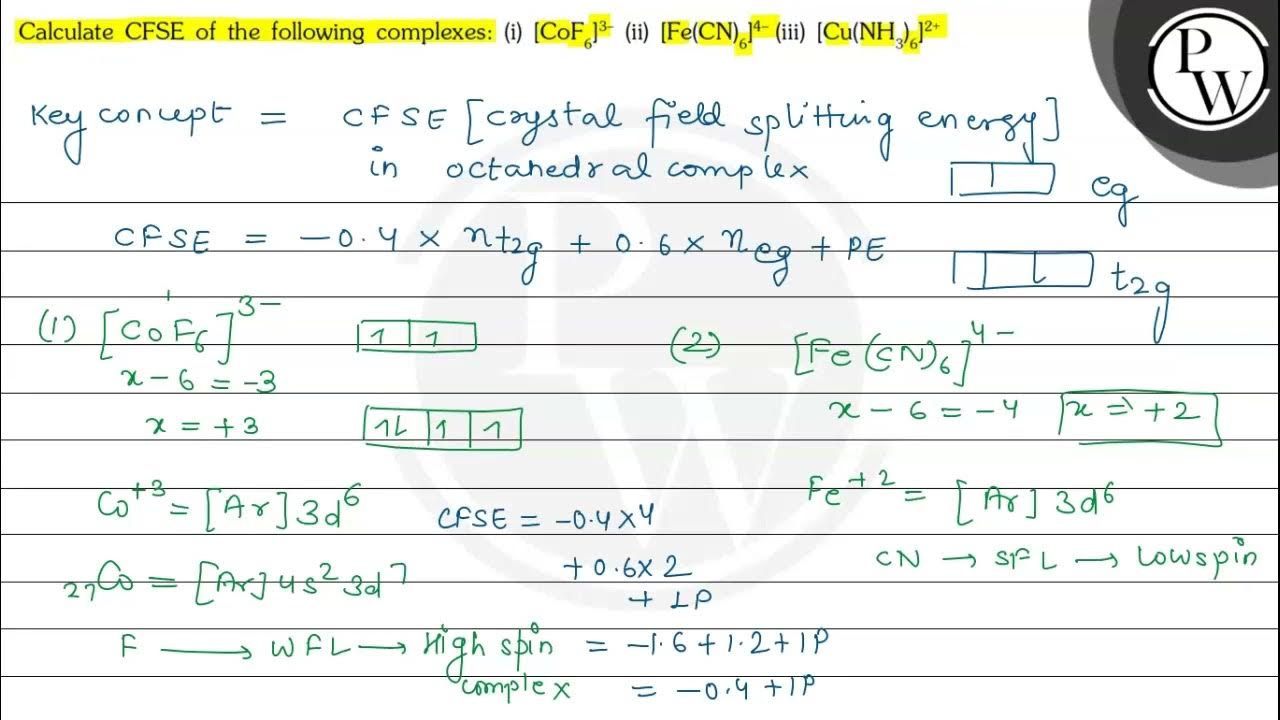 Calculate CFSE of the following complexes: (i) [CoF₆]³⁻ (ii) [Fe(CN)₆]⁴⁻ (iii) [Cu(NH₃)₆]²⁺
PW
Key concept = CFSE [crystal field splitting energy]
in octahedral complex
eg
CFSE = -0.4 × nt₂g + 0.6 × neg + PE
t₂g
(1) [CoF₆]³⁻
1 1
x - 6 = -3
x = +3
1L 1 1
Co⁺³ = [Ar] 3d⁶
₂₇Co = [Ar] 4s² 3d⁷
F → WFL → High spin
complex
CFSE = -0.4×4
+ 0.6×2
+ 1P
= -1.6 + 1.2 + 1P
= -0.4 + 1P
(2) [Fe(CN)₆]⁴⁻
x - 6 = -4 x ⇒ +2
Fe⁺² = [Ar] 3d⁶
CN → SFL → Low spin